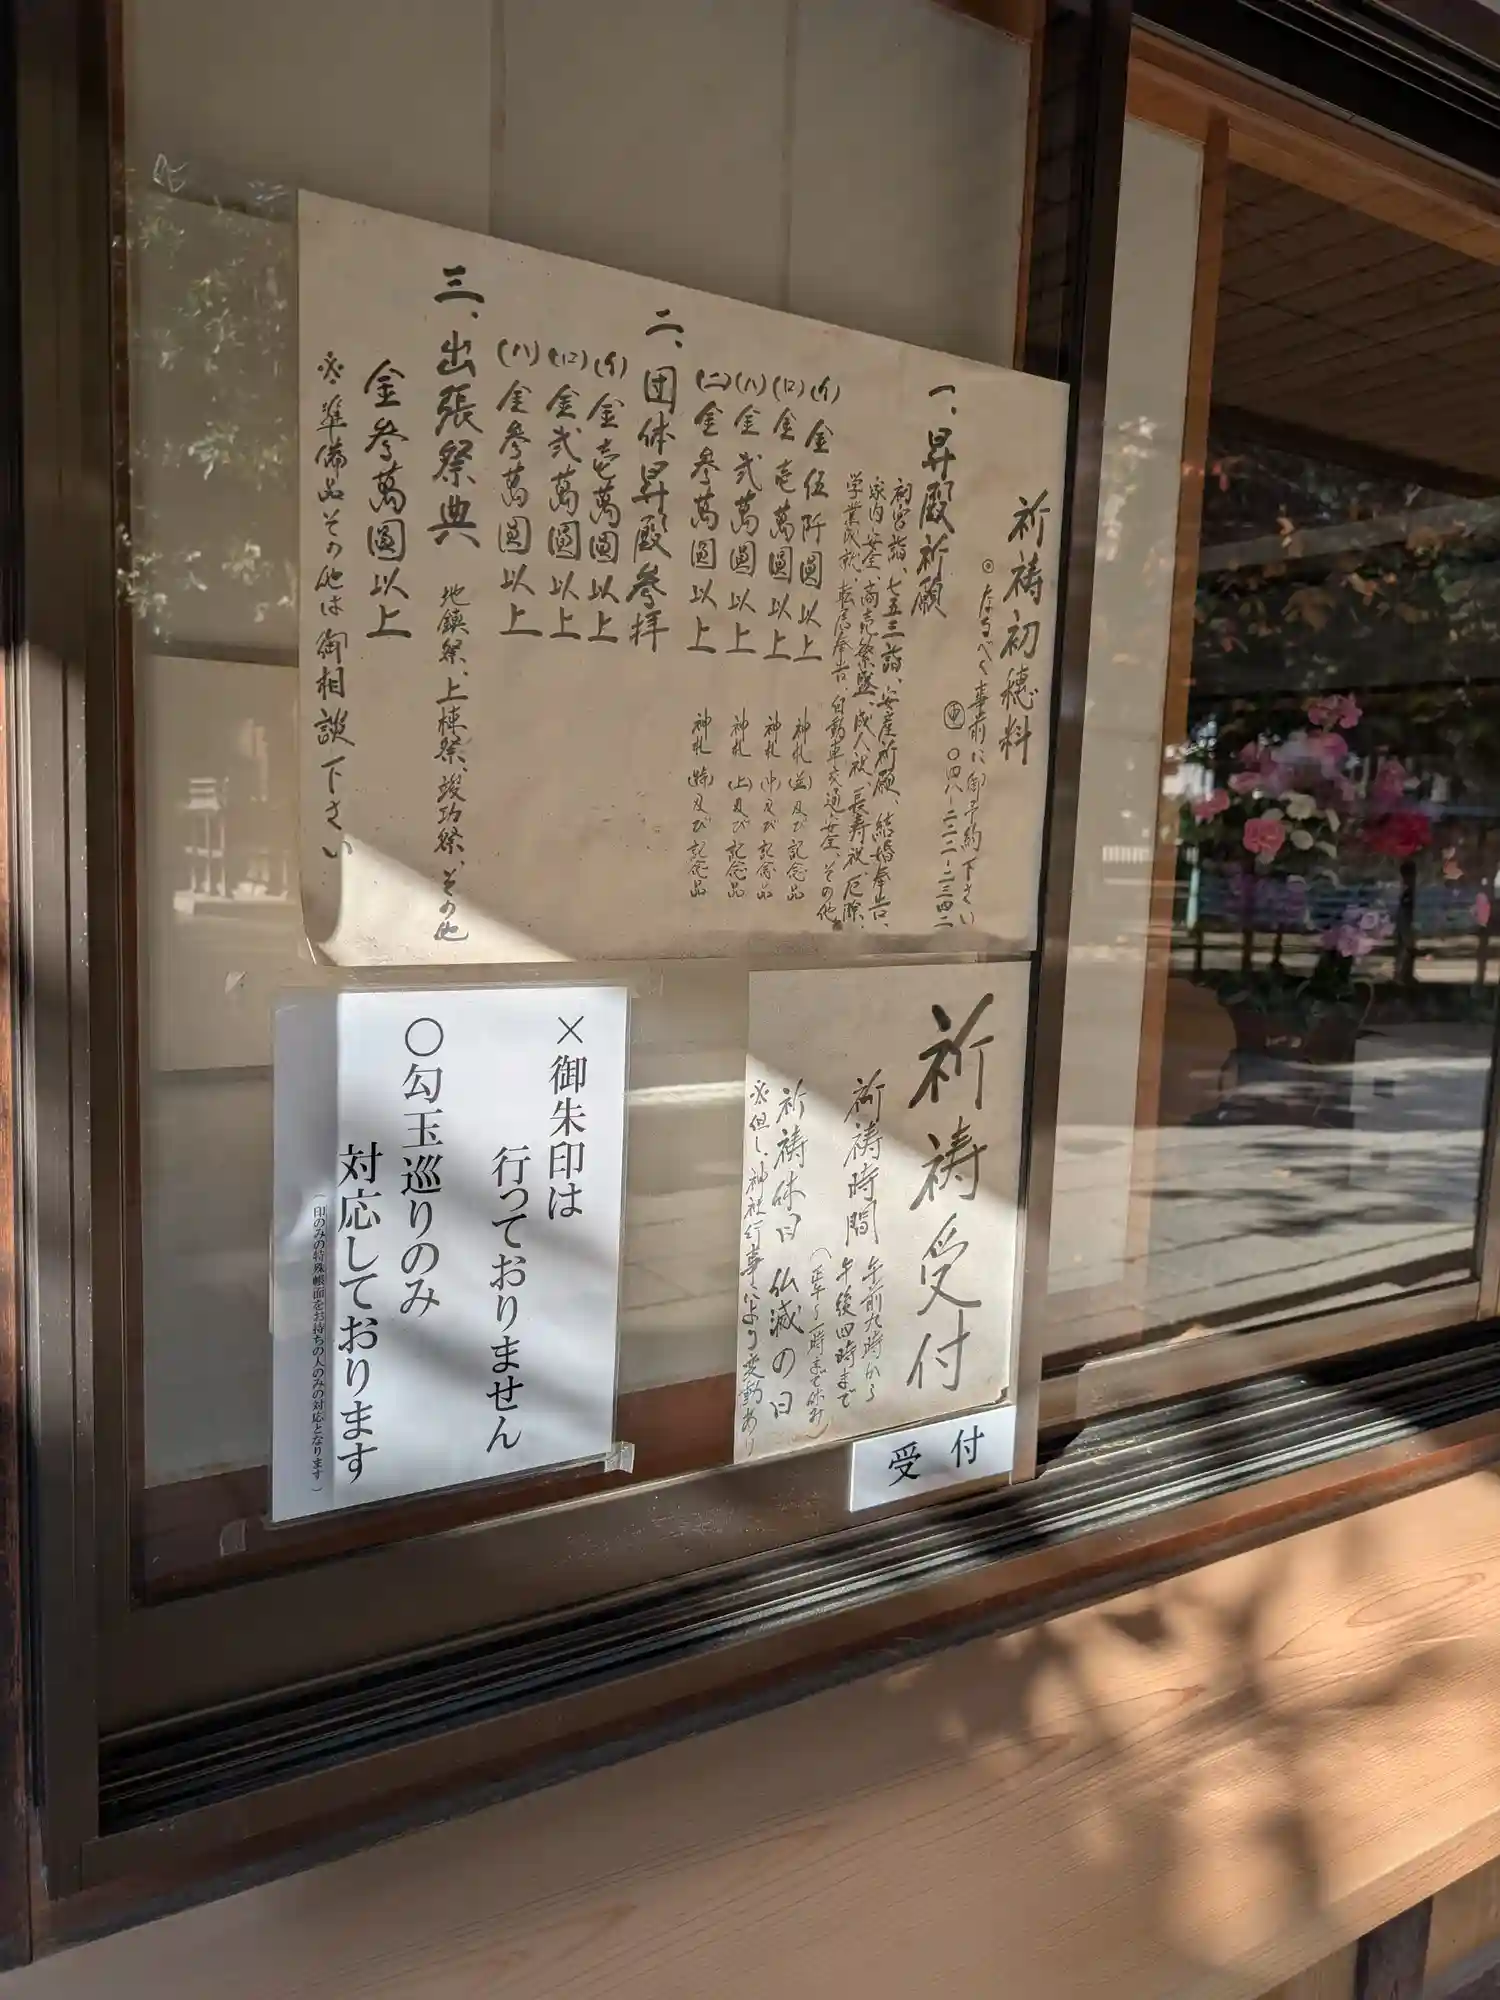 祈祷初穂料
◎なるべく事前に御予約下さい
電 〇四八-二二二-二三四二
一、昇殿祈願
初宮詣、七五三詣、安産祈願、結婚奉告、
家内安全、商売繁盛、成人祝、長寿祝、厄除、
学業成就、転居奉告、自動車交通安全、その他
(イ)金伍阡圓以上 神札(並)及び記念品
(ロ)金壱萬圓以上 神札(中)及び記念品
(ハ)金弐萬圓以上 神札(上)及び記念品
(ニ)金参萬圓以上 神札(特)及び記念品
二、団体昇殿参拝
(イ)金壱萬圓以上
(ロ)金弐萬圓以上
(ハ)金参萬圓以上
三、出張祭典 地鎮祭、上棟祭、竣功祭、その他
金参萬圓以上
※準備品その他は御相談下さい
祈祷受付
祈祷時間 午前九時から
午後四時まで
(正午〜一時まで休み)
祈祷休日 仏滅の日
※但し神社行事により変動あり
受付
×御朱印は
行っておりません
〇勾玉巡りのみ
対応しております
(印のみの特殊帳面をお持ちの人のみの対応となります)